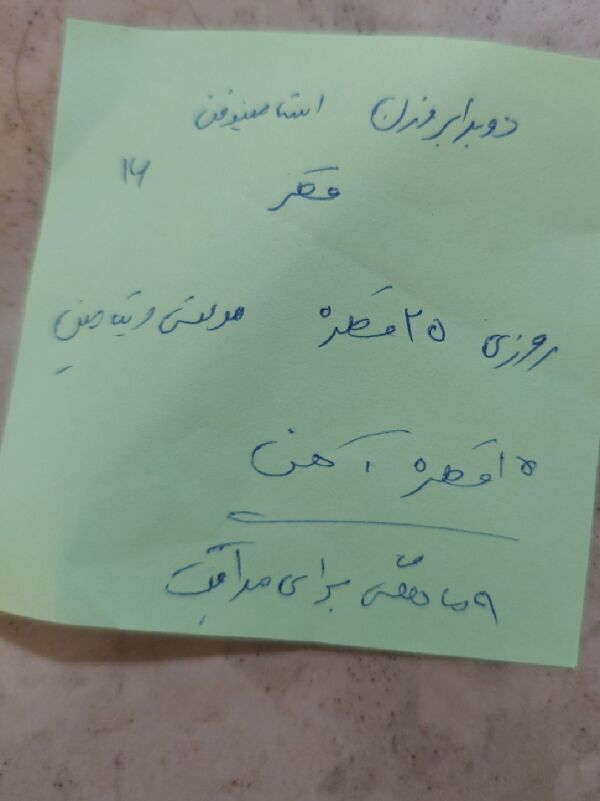 دو برابر وزن استامینوفن
قطره ۱۶
روزی ۲۵ قطره مولتی ویتامین
۱۵ قطره آهن
۹ ماهگی برای مراقبت